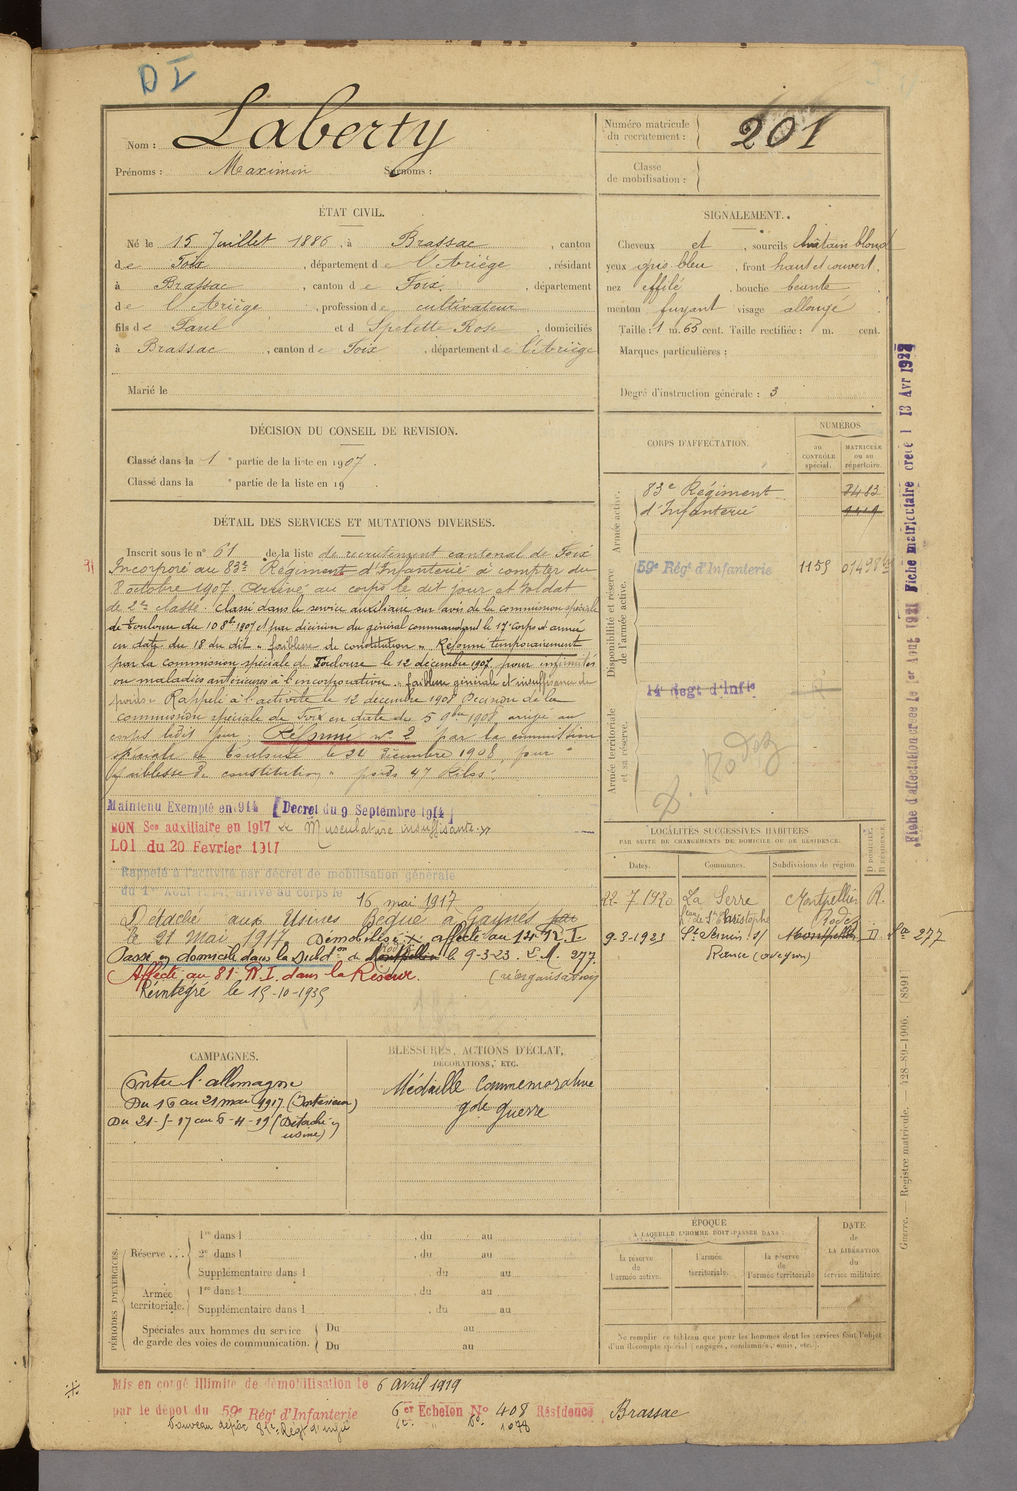 D I
Nom : Laberty
Prénoms : Maximin Surnoms :
Numéro matricule
du recrutement : 201
Classe
de mobilisation :
ÉTAT CIVIL.
Né le 15 Juillet 1886, à Brassac, canton
de Foix, département de l'Ariège, résidant
à Brassac, canton de Foix, département
de l'Ariège, profession de cultivateur
fils de Paul et d Spelette Rose, domiciliés
à Brassac, canton de Foix, département de l'Ariège
Marié le
SIGNALEMENT.
Cheveux et, sourcils châtain blond
yeux gris bleu, front haut et couvert,
nez effilé, bouche béante
menton fuyant visage allongé
Taille : 1 m. 63 cent. Taille rectifiée : m. cent.
Marques particulières :
Degré d'instruction générale : 3
DÉCISION DU CONSEIL DE REVISION.
Classé dans la 1 e partie de la liste en 1907.
Classé dans la e partie de la liste en 19
CORPS D'AFFECTATION.
NUMÉROS
au
CONTRÔLE
spécial.
MATRICULE
ou au
répertoire.
Armée active.
83e Régiment 8483
d'Infanterie
Disponibilité et réserve
de l'armée active.
59e Régt d'Infanterie 1159
14e Regt d'Infie
Armée territoriale
et sa réserve.
Rodez
DÉTAIL DES SERVICES ET MUTATIONS DIVERSES.
Inscrit sous le n° 61 de la liste de recrutement cantonal de Foix
Incorporé au 83e Régiment d'Infanterie à compter du
8 octobre 1907. Arrivé au corps le dit jour et soldat
de 2e classe. Classé dans le service auxiliaire sur avis de la commission spéciale
de Toulouse du 10 8bre 1907 et par décision du général commandant le 17e Corps d'armée
en date du 18 du dit "faiblesse de constitution". Réformé temporairement
par la commission spéciale de Toulouse le 12 décembre 1907 pour infirmités
ou maladies antérieures à l'incorporation "faiblesse générale et insuffisance de
poids". Rappelé à l'activité le 12 décembre 1908 Décision de la
commission spéciale de Foix en date du 5 9bre 1908 arrivé au
corps ledit jour. Réformé n° 2 par la commission
spéciale de Toulouse le 22 décembre 1908, pour "
faiblesse de constitution" poids 47 kilos.
Maintenu Exempté en 914 [Decret du 9 Septembre 1914]
BON Ser auxiliaire en 1917 Musculature insuffisante
LOI du 20 Fevrier 1917
Rappelé à l'activité par décret de mobilisation générale
du 1er Août 1914, arrivé au corps le
16 mai 1917
Détaché aux Usines
le 21 Mai 1917. Démobilisé affecté au 14e R.I
Passé en domicile dans la Subdon de Montpellier le 9-3-23. L. M. 277.
Affecté au 81e R.I. dans la Réserve. (réorganisation)
Réintégré le 15-10-1935
LOCALITÉS SUCCESSIVES HABITÉES
PAR SUITE DE CHANGEMENTS DE DOMICILE OU DE RÉSIDENCE.
Dates. Communes. Subdivisions de région.
D DOMICILE.
R RÉSIDENCE.
22-7-1920 La Serre Montpellier R.
Rodez
9-3-1923 St Sernin s/ Montpellier D 277
Rance (Aveyron)
CAMPAGNES.
Contre l'allemagne
Du 16 au 21 mai 1917 (Intérieur)
Du 21-5-17 au 6-4-19 (Détaché en
usine)
BLESSURES, ACTIONS D'ÉCLAT,
DÉCORATIONS, ETC.
Médaille Commemorative
gde guerre
PÉRIODES D'EXERCICES.
Réserve ... 1re dans l , du au
2e dans l , du au
Supplémentaire dans l , du au
Armée
territoriale. 1re dans l , du au
Supplémentaire dans l , du au
Spéciales aux hommes du service
de garde des voies de communication. Du au
Du au
ÉPOQUE
À LAQUELLE L'HOMME DOIT PASSER DANS :
la réserve
de
l'armée active.
l'armée
territoriale.
la réserve
de
l'armée territoriale
DATE
de
LA LIBÉRATION
du
service militaire.
Ne remplir ce tableau que pour les hommes dont les services font l'objet
d'un décompte spécial (engagés, condamnés, omis, etc.).
Mis en congé illimité de démobilisation le 6 avril 1919
par le dépot du 59e Régt d'Infanterie 6er Echelon No 408 Résidence Brassac
Nouveau dépôt 81e Régt d'infie 1078
Fiche d'affectation créée le 1er Aout 1921 Fiche matriculaire créée l 13 Avr 1922
Guerre. — Registre matricule. — 428-89-1906. [8591]